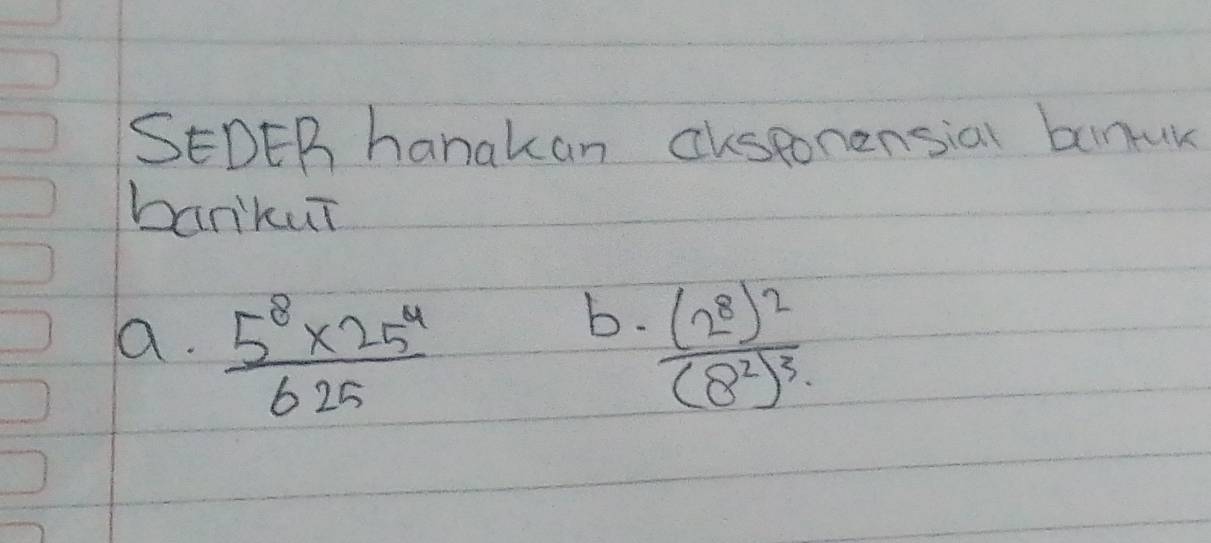 SEDER hanakan aksponensial bantuk
barikut
a. 5⁸ x 25⁴ / 625 b. (2⁸)² / (8²)³.